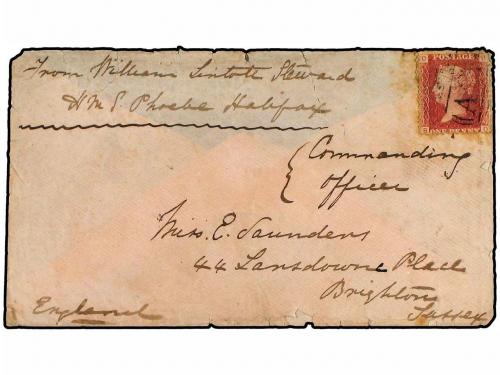 From William Lintott Steward
H.M.S. Phoebe Halifax
Commanding
Officer
Miss. E. Saunders
44 Lansdowne Place
Brighton
Sussex
England
POSTAGE
ONE PENNY